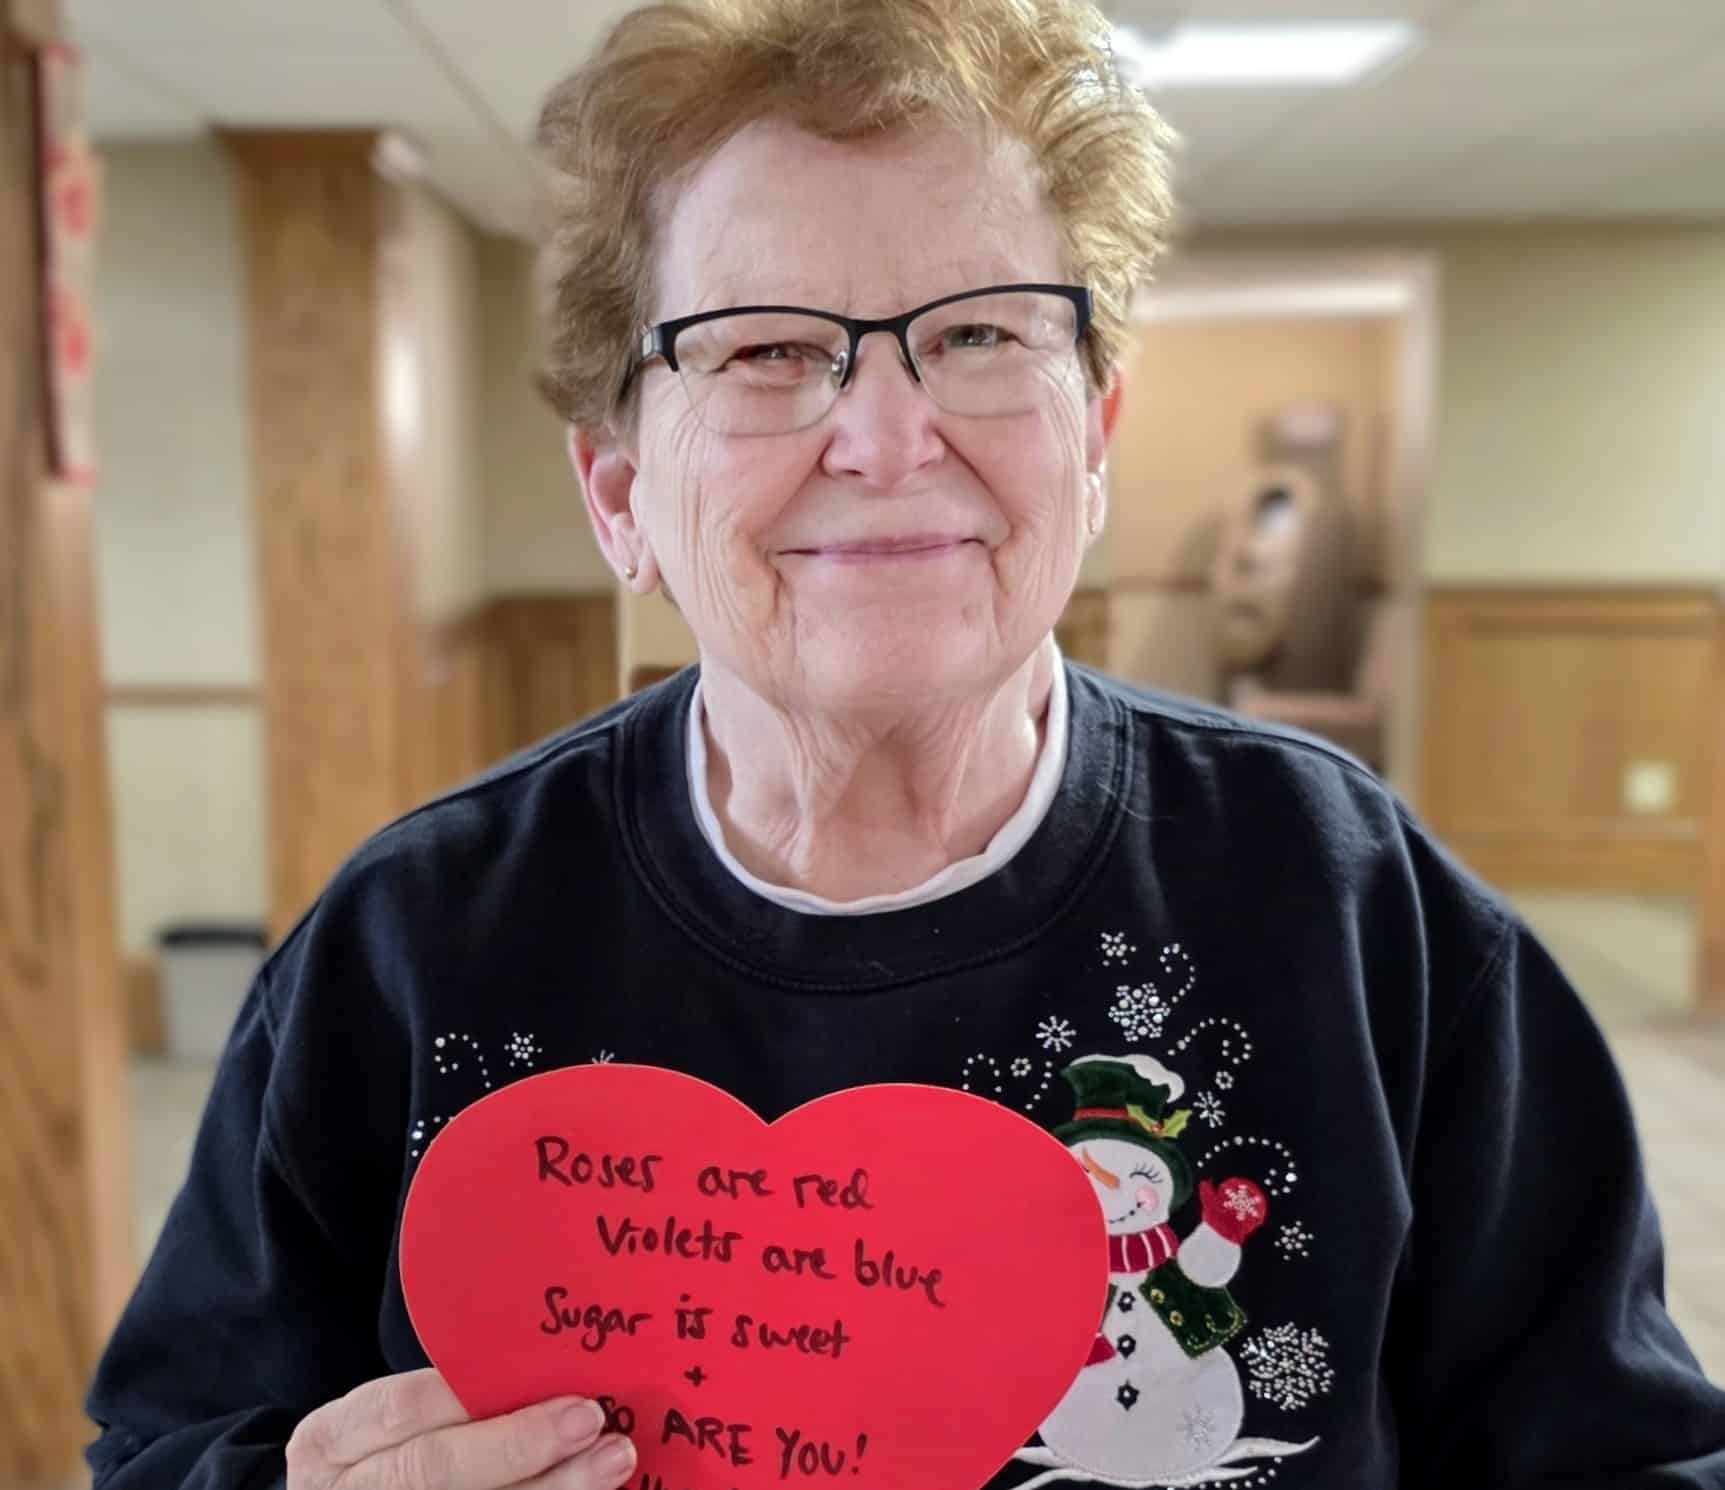 Roses are red
Violets are blue
Sugar is sweet
+
So ARE YOU!